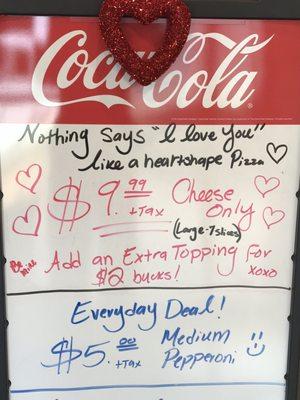 Coca-Cola
Nothing Says "I love You"
like a heartshape Pizza
$9.99 + Tax Cheese Only
(Large-7slices)
Be Mine
Add an Extra Topping for
$2 bucks! xoxo
Everyday Deal!
$5.00 + tax Medium
Pepperoni